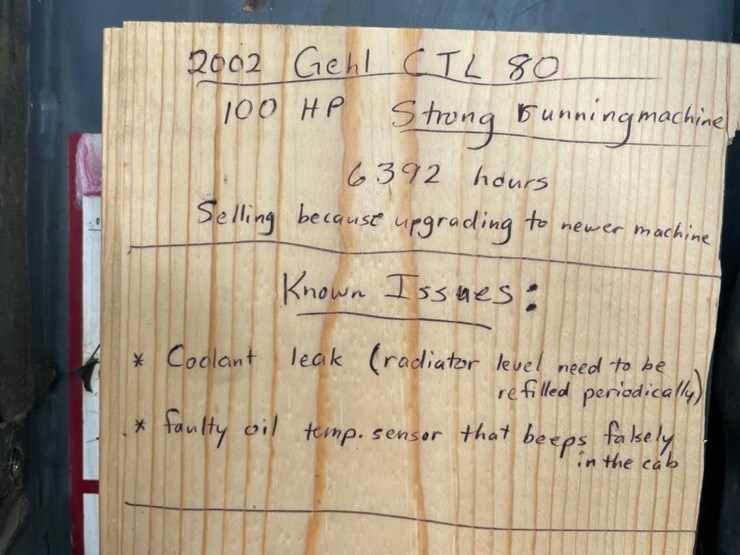 2002 Gehl CTL 80
100 HP Strong running machine
6392 hours
Selling because upgrading to newer machine
Known Issues:
* Coolant leak (radiator level need to be
refilled periodically)
* faulty oil temp. sensor that beeps falsely
in the cab